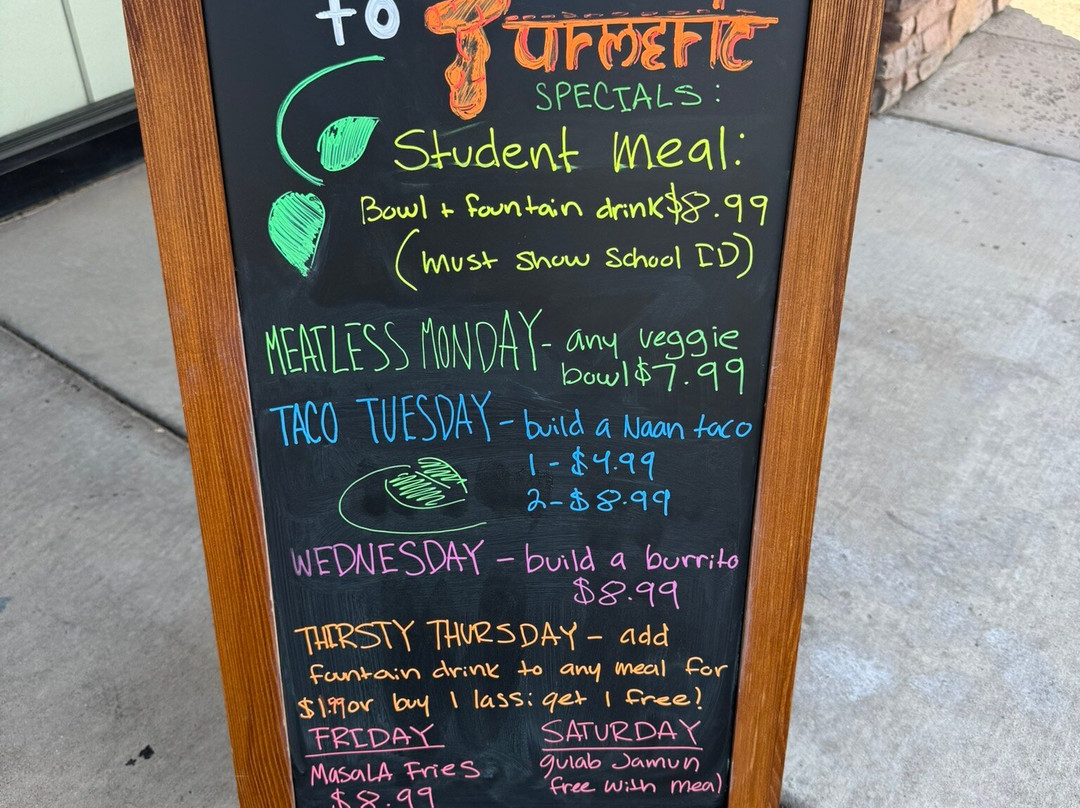 to Turmeric
SPECIALS:
Student Meal:
Bowl + fountain drink $8.99
(must show School ID)
MEATLESS MONDAY - any veggie
bowl $7.99
TACO TUESDAY - build a Naan taco
1 - $4.99
2 - $8.99
WEDNESDAY - build a burrito
$8.99
THIRSTY THURSDAY - add
fountain drink to any meal for
$1.99 or buy 1 lassi get 1 free!
FRIDAY
MasaLA Fries
$8.99
SATURDAY
gulab Jamun
free with meal